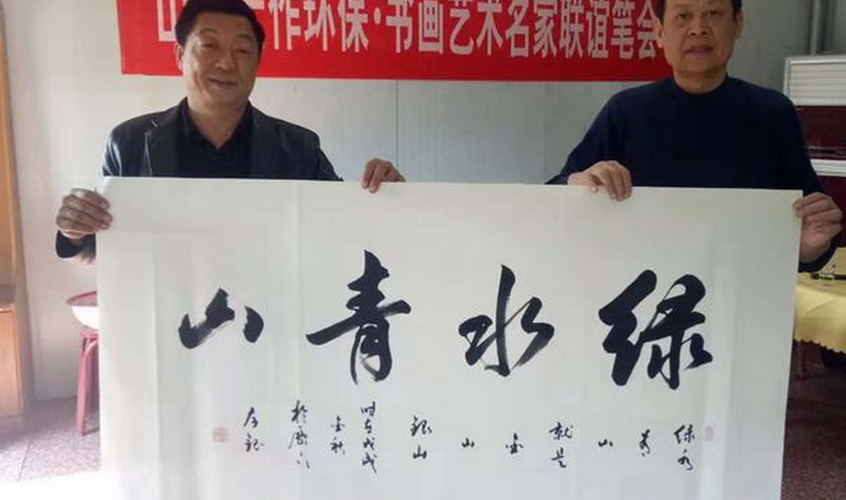 作环保·书画艺术名家联谊笔会
绿水青山
绿水
青
山
就是
金
山
银山
时在戊戌
金秋